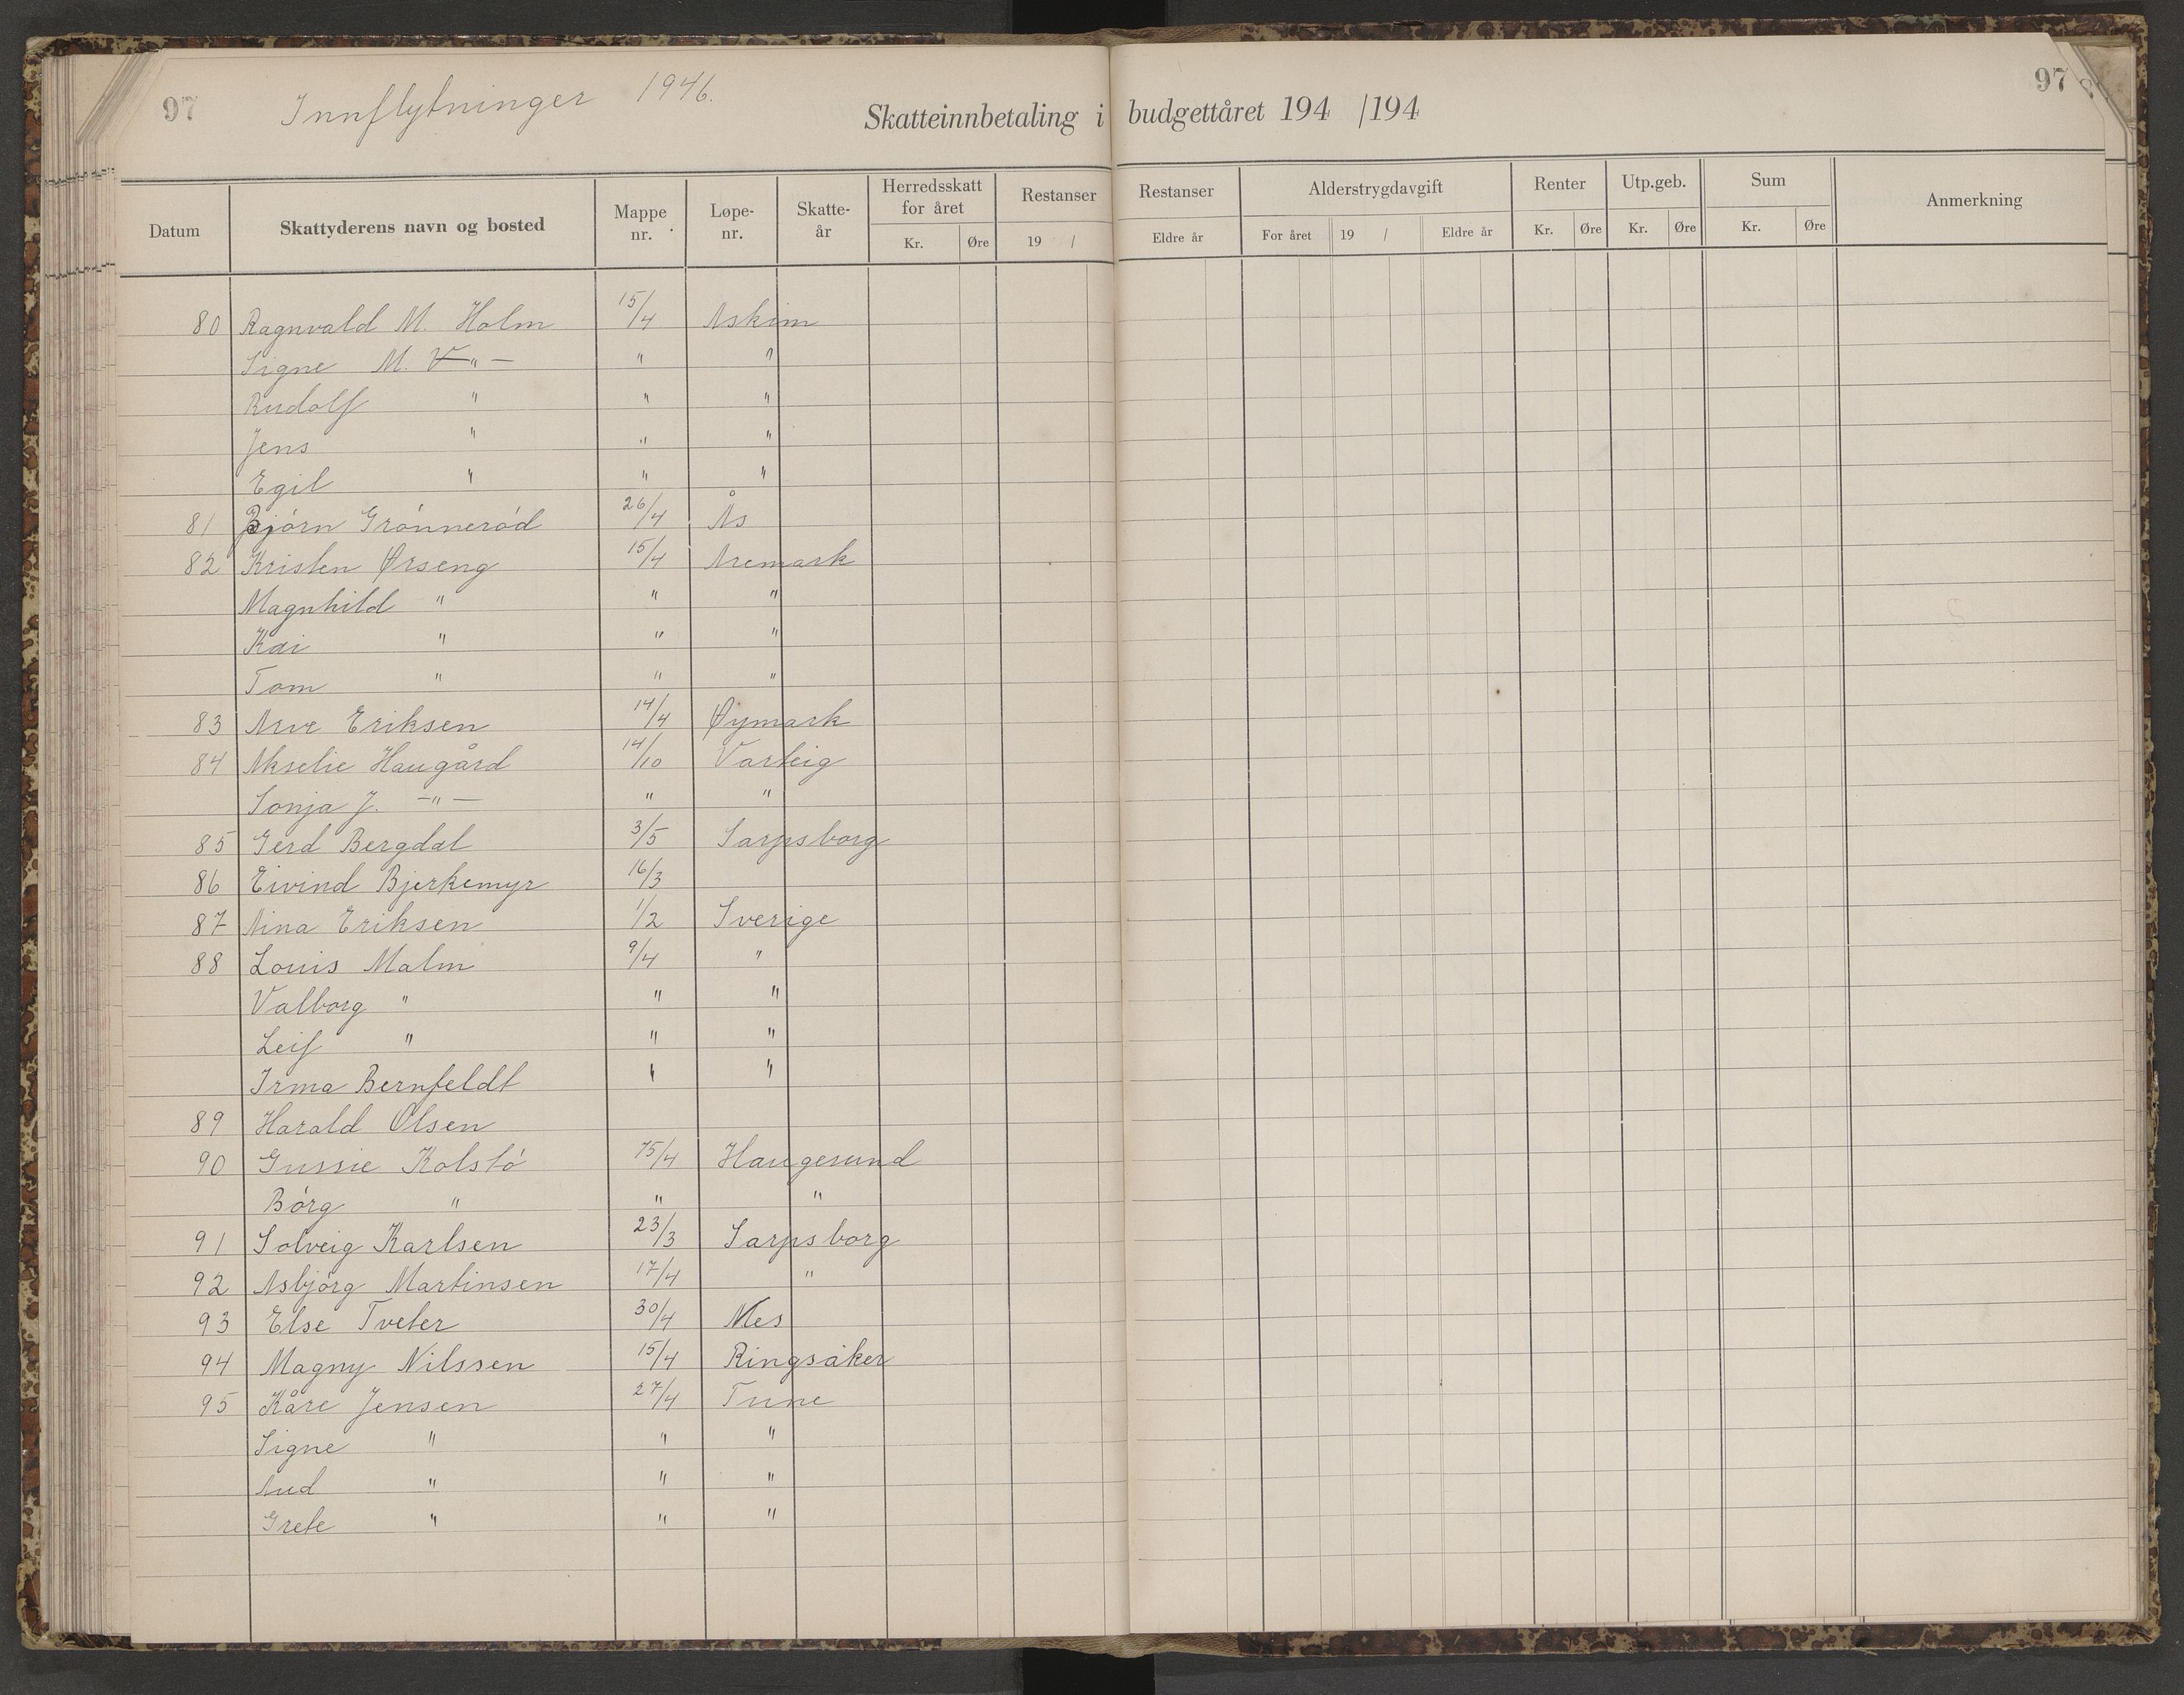 97 Innflytninger 1946.
Skatteinnbetaling i budgettåret 194 /194
97
Datum Skattyderens navn og bosted Mappe nr. Løpe-nr. Skatte-år Herredsskatt for året Kr. Øre Restanser 19 / Restanser Eldre år Alderstrygdavgift For året 19 / Eldre år Renter Kr. Øre Utp.geb. Kr. Øre Sum Kr. Øre Anmerkning
80 Ragnvald M. Holm 15/4 Askim
Signe M. V " — " "
Rudolf " " "
Jens " " "
Egil " " "
81 Bjórn Grónneród 26/4 Ås
82 Kristen Ørseng 15/4 Aremark
Magnhild " " "
Kai " " "
Tom " " "
83 Arve Eriksen 14/4 Øymark
84 Akselie Haugård 14/10 Varteig
Sonja J. —"— " "
85 Gerd Bergdal 3/5 Sarpsborg
86 Eivind Bjerkemyr 16/3
87 Nina Eriksen 1/2 Sverige
88 Louis Malm 9/4 "
Valborg " " "
Leif " " "
Irma Bernfeldt " "
89 Harald Olsen
90 Gussie Kolstó 15/4 Haugesund
Bórg " " "
91 Solveig Karlsen 23/3 Sarpsborg
92 Asbjórg Martinsen 17/4 "
93 Else Tveter 30/4 Nes
94 Magny Nilssen 15/4 Ringsaker
95 Kåre Jensen 27/4 Tune
Signe " " "
Aud " " "
Grete " " "